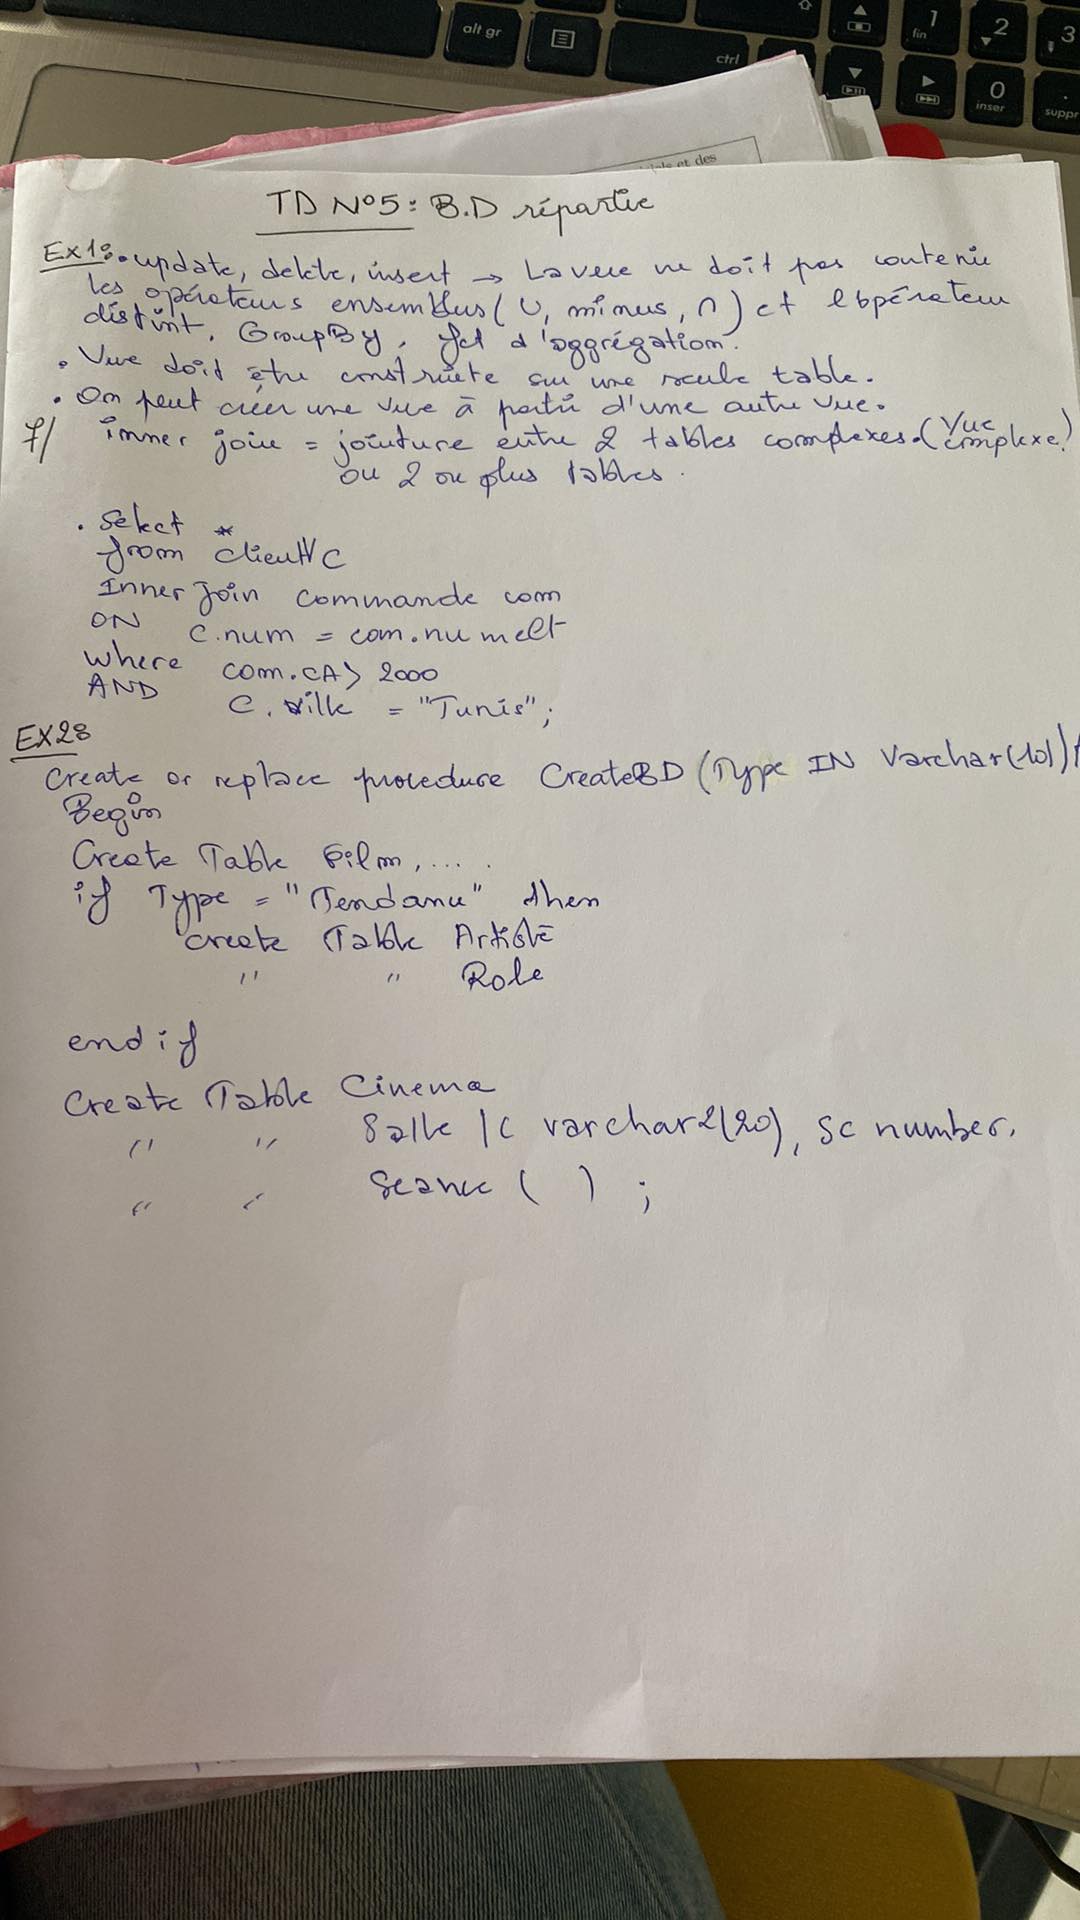 alt gr
ctrl
1
fin
2
3
0
inser
suppr
et des
TD N°5: B.D répartie
Ex1: • update, delete, insert → La vue ne doit pas contenir
les opérateurs ensemblus (U, minus, ∩) et l'opérateur
distint, GroupBy, fct d'aggrégation.
• Vue doit être construite sur une seule table.
• On peut créer une vue à partir d'une autre vue.
7/ inner join = jointure entre 2 tables complexes. (Vue complexe)
ou 2 ou plus tables.
• Select *
from client C
Inner Join commande com
ON C.num = com.numclt
where com.CA > 2000
AND C.ville = "Tunis";
EX2:
Create or replace procedure CreateBD (Type IN Varchar(10))
Begin
Create Table Film, ....
if Type = "Tendance" then
create Table Artiste
" " Role
end if
Create Table Cinema
" " Salle (C varchar2(20), SC number,
" " Seance ( ) ;